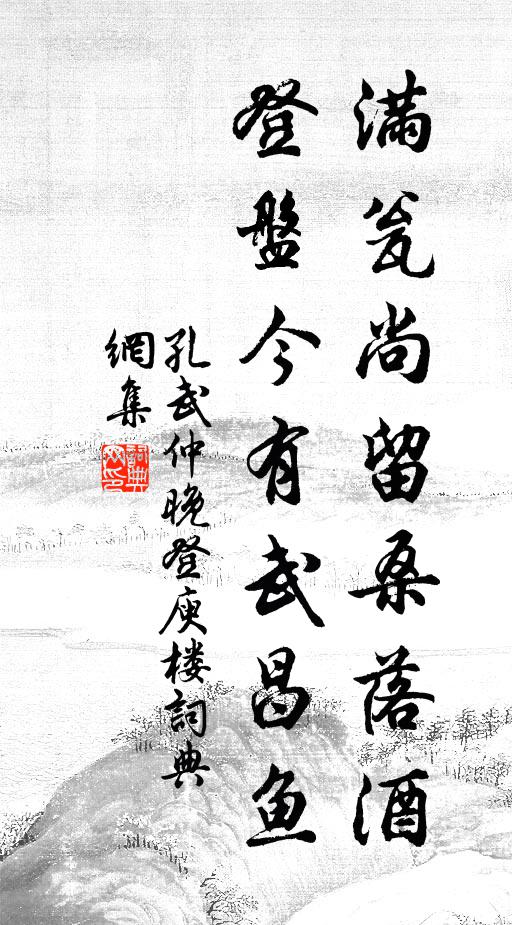 满瓮尚留桑落酒
登盤今有武昌鱼
孔武仲晚登庾楼詞典
網集
詞典
网印